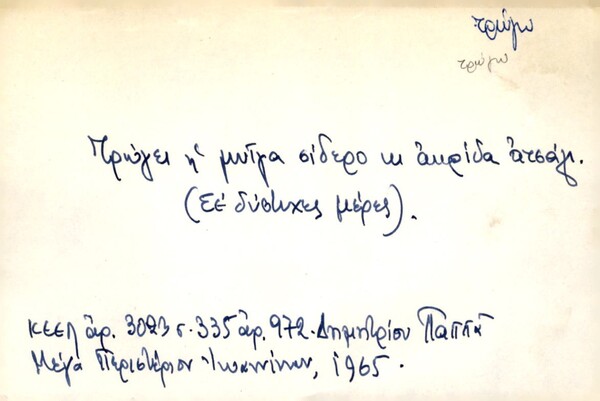 τρώγω
τρώγω
Τρώγει ἡ μυῖγα σίδερο κι ἀκρίδα ἀτσάλι.
(Σέ δύστυχες μέρες).
ΚΕΕΛ ἀρ. 3023 σ. 335 ἀρ. 972. Δημητρίου Παππᾶ
Μέγα Περιστέριον Ἰωαννίνων, 1965.